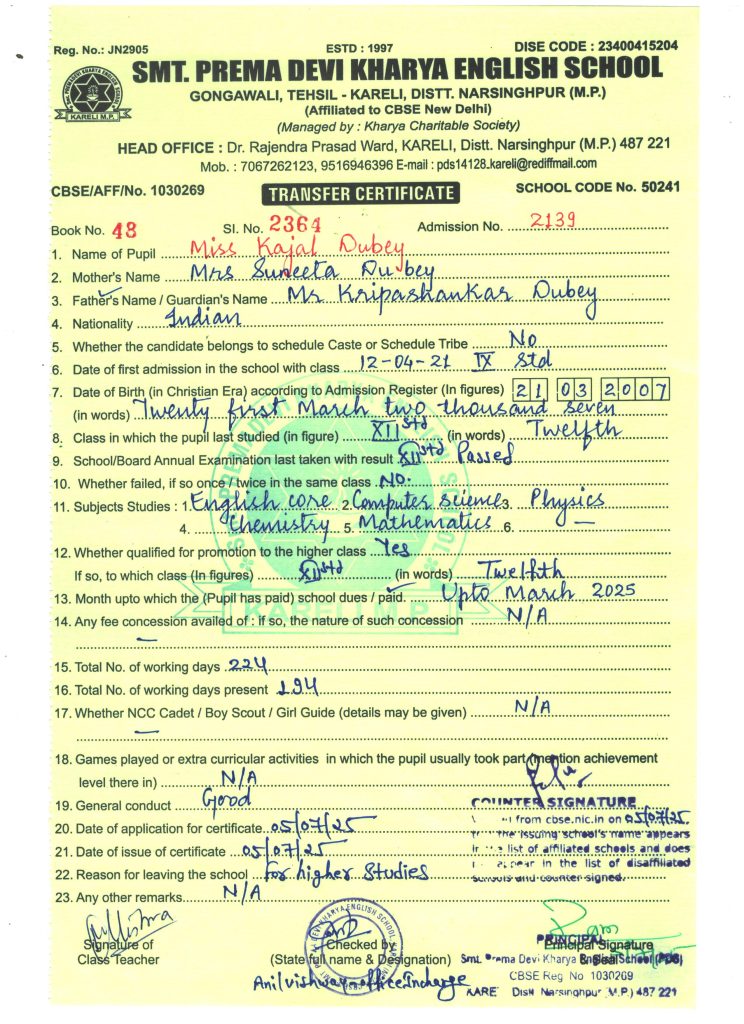 Reg. No.: JN2905 ESTD : 1997 DISE CODE : 23400415204
SMT. PREMA DEVI KHARYA ENGLISH SCHOOL
GONGAWALI, TEHSIL - KARELI, DISTT. NARSINGHPUR (M.P.)
(Affiliated to CBSE New Delhi)
(Managed by : Kharya Charitable Society)
KARELI M.P.
HEAD OFFICE : Dr. Rajendra Prasad Ward, KARELI, Distt. Narsinghpur (M.P.) 487 221
Mob. : 7067262123, 9516946396 E-mail : pds14128_kareli@rediffmail.com
CBSE/AFF/No. 1030269 TRANSFER CERTIFICATE SCHOOL CODE No. 50241
Book No. 43 Sl. No. 2364 Admission No. 2139
1. Name of Pupil Miss Kajal Dubey
2. Mother's Name Mrs Suneeta Dubey
3. Father's Name / Guardian's Name Mr Kripashankar Dubey
4. Nationality Indian
5. Whether the candidate belongs to schedule Caste or Schedule Tribe No
6. Date of first admission in the school with class 12-04-21 IX Std
7. Date of Birth (in Christian Era) according to Admission Register (In figures) 21 03 2007
(in words) Twenty first March two thousand seven
8. Class in which the pupil last studied (in figure) XII std (in words) Twelfth
9. School/Board Annual Examination last taken with result XII std Passed
10. Whether failed, if so once / twice in the same class No.
11. Subjects Studies : 1. English core 2. Computer science 3. Physics
4. Chemistry 5. Mathematics 6. —
12. Whether qualified for promotion to the higher class Yes
If so, to which class (In figures) XII std (in words) Twelfth
13. Month upto which the (Pupil has paid) school dues / paid. Upto March 2025
14. Any fee concession availed of : if so, the nature of such concession N/A
—
KARELI M.P.
15. Total No. of working days 224
16. Total No. of working days present 194
17. Whether NCC Cadet / Boy Scout / Girl Guide (details may be given) N/A
—
18. Games played or extra curricular activities in which the pupil usually took part (mention achievement
level there in) N/A
19. General conduct Good
COUNTER SIGNATURE
20. Date of application for certificate 05/07/25
from cbse.nic.in on 05/07/25.
the issuing school's name appears
21. Date of issue of certificate 05/07/25
list of affiliated schools and does
appear in the list of disaffiliated
22. Reason for leaving the school for higher Studies
schools and counter signed.
23. Any other remarks. N/A
Signature of Class Teacher
Checked by
(State full name & Designation)
Anil vishwa office Incharge
PRINCIPAL
Principal Signature
& Seal
Smt. Prema Devi Kharya English School (PDS)
CBSE Reg No 1030269
KARE Distt Narsinghpur (M.P.) 487 221